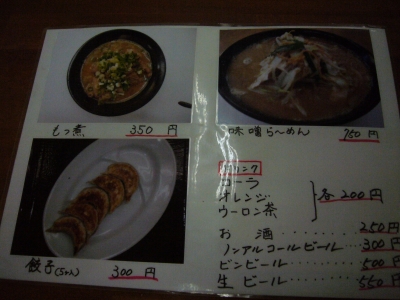 もつ煮 350円
味噌らーめん 750円
餃子(5ヶ入) 300円
ドリンク
コーラ
オレンジ
ウーロン茶
各200円
お酒 ........ 250円
ノンアルコールビール .... 300円
ビンビール ........ 500円
生ビール ........ 550円